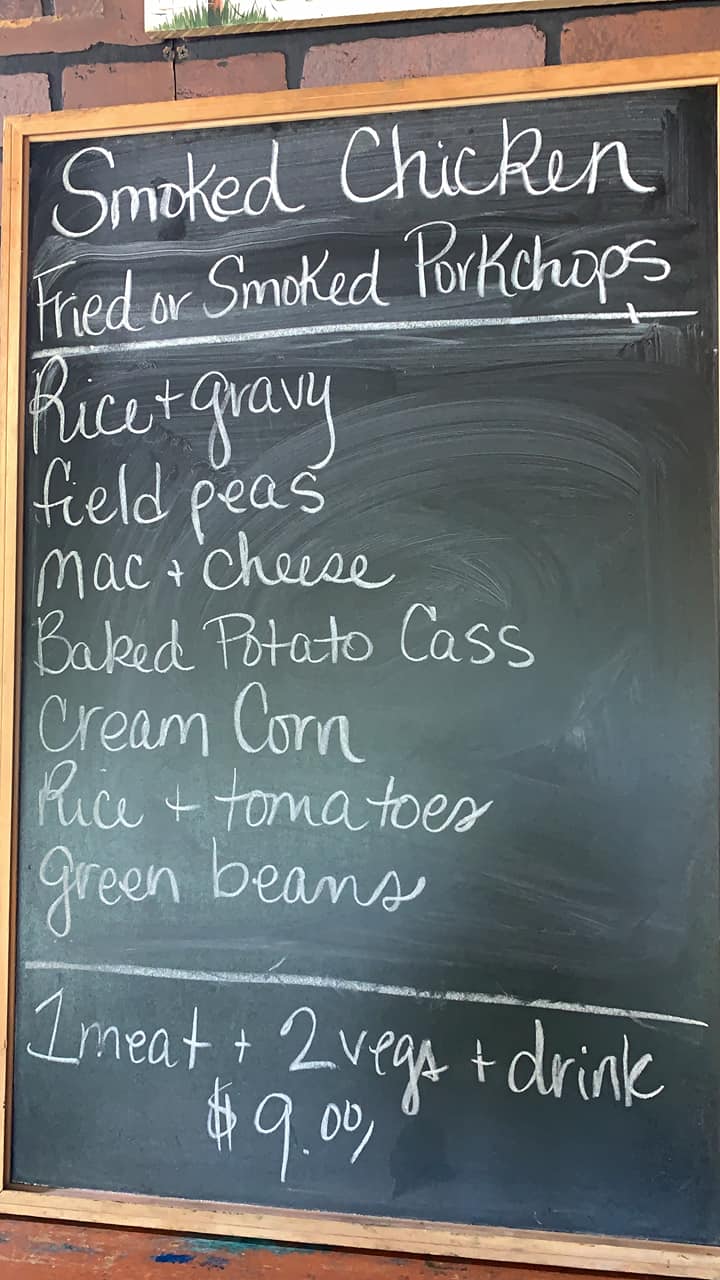 Smoked Chicken
Fried or Smoked Porkchops
Rice + gravy
field peas
mac + cheese
Baked Potato Cass
Cream Corn
Rice + tomatoes
green beans
1 meat + 2 vegs + drink
$9.00